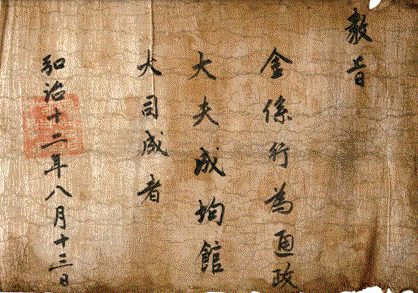 敎旨
金係行為通政
大夫成均館
大司成者
弘治十二年八月十三日